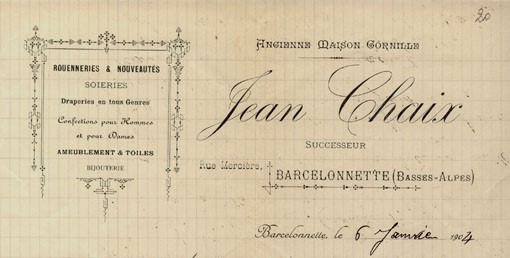 20
ANCIENNE MAISON CORNILLE
ROUENNERIES & NOUVEAUTÉS
SOIERIES
Draperies en tous Genres
Confections pour Hommes
et pour Dames
AMEUBLEMENT & TOILES
BIJOUTERIE
Jean Chaix
SUCCESSEUR
Rue Mercière,
BARCELONNETTE (BASSES-ALPES)
Barcelonnette, le 6 Janvier 1904